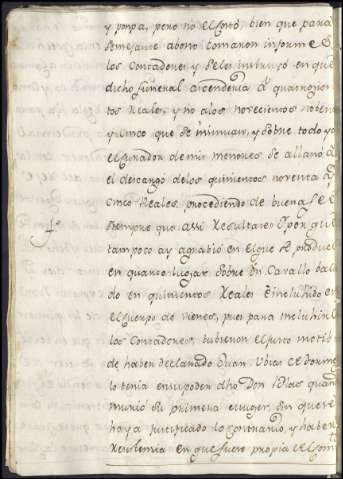 y pompa, pero no el somo, bien que para
semejante abono tomaron informe
los Contadores, y se les instruyó en que
dicho funeral ascenderia a quatrozien
tos Reales, y no alos novecientos noventa
y cinco que se minuian, y sobre todo yo
el Curador de mis menores se allanó a
el descargo delos quinientos noventa y
cinco Reales, procediendo de buena fee
siempre que assi Resultare: por que
tampoco ay agrabio en el que se produce
en quarto lugar sobre un Cavallo bala
do en quinientos Reales è incluhido en
el Cuerpo de vienes, pues para incluhirlo
los Contadores, tubieron el justo motibo
de haver declarado Juan
lo tenia en su poder dho Don Blas quando
murió su primera muger, sin que se
haya justificado lo contrario, y haver
en que fuere propia el